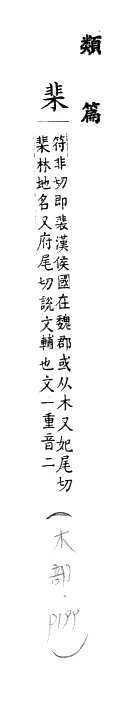 類篇
棐
符非切即裴漢侯國在魏郡或从木又妃尾切
棐林地名又府尾切說文輔也文一重音二
(木部·P199)